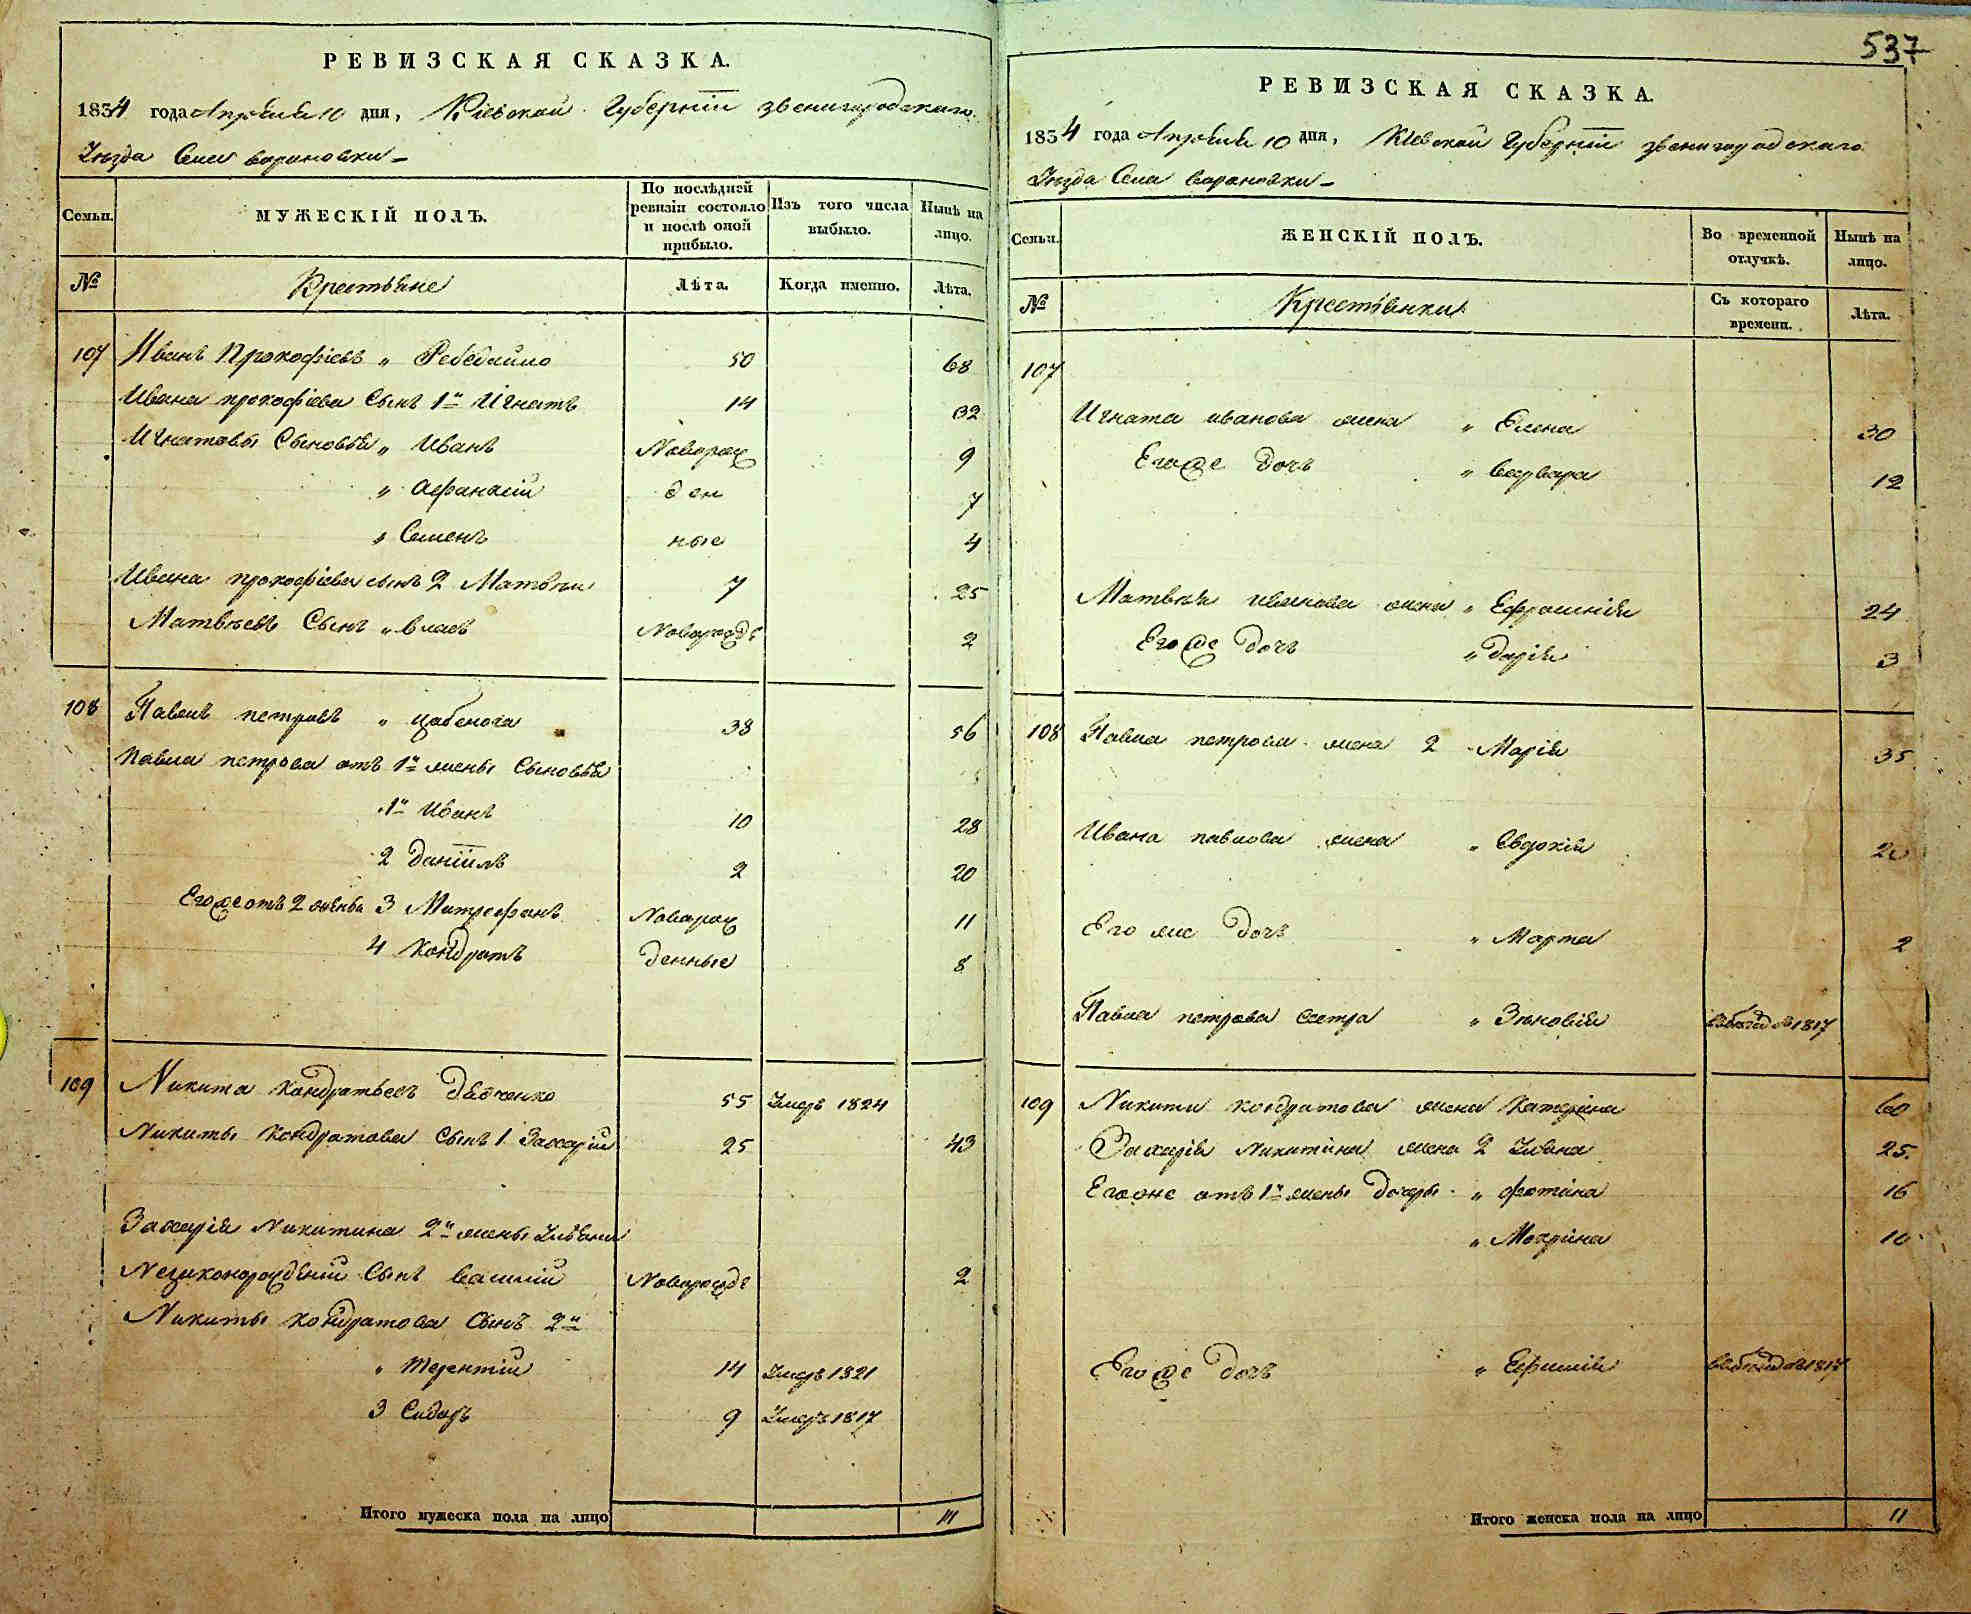 537
РЕВИЗСКАЯ СКАЗКА.
1834 года Апреля 10 дня, Кіевской Губерніи звенигородскаго
Уезда Села варановки
Семьи. МУЖЕСКІЙ ПОЛЪ. По послѣдней ревизіи состояло и послѣ оной прибыло. Изъ того числа выбыло. Нынѣ на лицо.
№ Крестьяне Лѣта. Когда именно. Лѣта.
107 Иванъ Прокофіевъ " Ребедайло 50 68
Ивана прокофіева Сынъ 1й Игнатъ 14 32
Игнатовы Сыновья " Иванъ Новорож 9
" Афанасій ден 7
" Семенъ ные 4
Ивана прокофіева сынъ 2 Матвѣй 7 25
Матвѣевъ Сынъ " власъ Новорожде 2
108 Павелъ петровъ " цабенога 38 56
Павла петрова отъ 1й жены Сыновья
1й Иванъ 10 28
2 Даніилъ 2 20
Егожеотъ 2 жены 3 Митрофанъ Новорож 11
4 Кондратъ денные 8
109 Никита Кондратьевъ Дяченко 55 Умеръ 1824
Никиты Кондратова Сынъ 1 Захарій 25 43
Захарія Никитина 2й жены Ульяны
Незаконорожденій Сынъ василій Новорожде 2
Никиты Кондратова Сынъ 2й
" Терентій 14 Умеръ 1821
3 Сидоръ 9 Умеръ 1817
Итого мужеска пола на лицо 11
РЕВИЗСКАЯ СКАЗКА.
1834 года Апреля 10 дня, Кіевской Губерніи звенигородскаго
Уезда Села варановки
Семьи. ЖЕНСКІЙ ПОЛЪ. Во временной отлучкѣ. Нынѣ на лицо.
№ Крестьянки Съ котораго времени. Лѣта.
107
Игната иванова жена " Елена 30
Егоже дочь " варвара 12
Матвѣя иванова жена " Ефросинія 24
Егоже Дочь " Дарія 3
108 Павла петрова жена 2 Марія 35
Ивана павлова жена " Евдокія 20
Его же Дочь " Марта 2
Павла петрова сестра " Зиновія 1817
109 Никиты кондратова жена Катерина 60
Захарія Никитина жена 2 Уліяна 25
Егоже отъ 1й жены Дочеры " фотина 16
" Мокрина 10
Егоже Дочь " Ефимія 1817
Итого женска пола на лицо 11